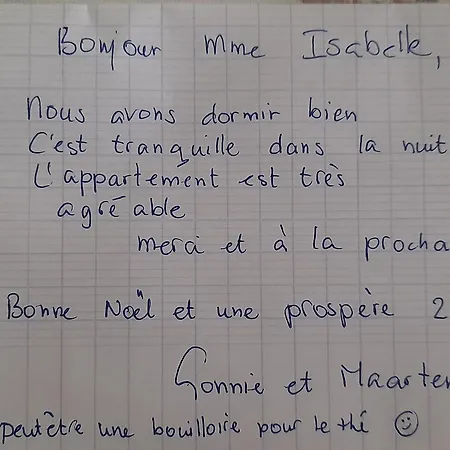 Bonjour Mme Isabelle,
Nous avons dormir bien
C'est tranquille dans la nuit
L'appartement est très
agré able
merci et à la procha
Bonne Noël et une prospère 2
Sonnie et Maarten
peutêtre une bouilloire pour le thé ☺